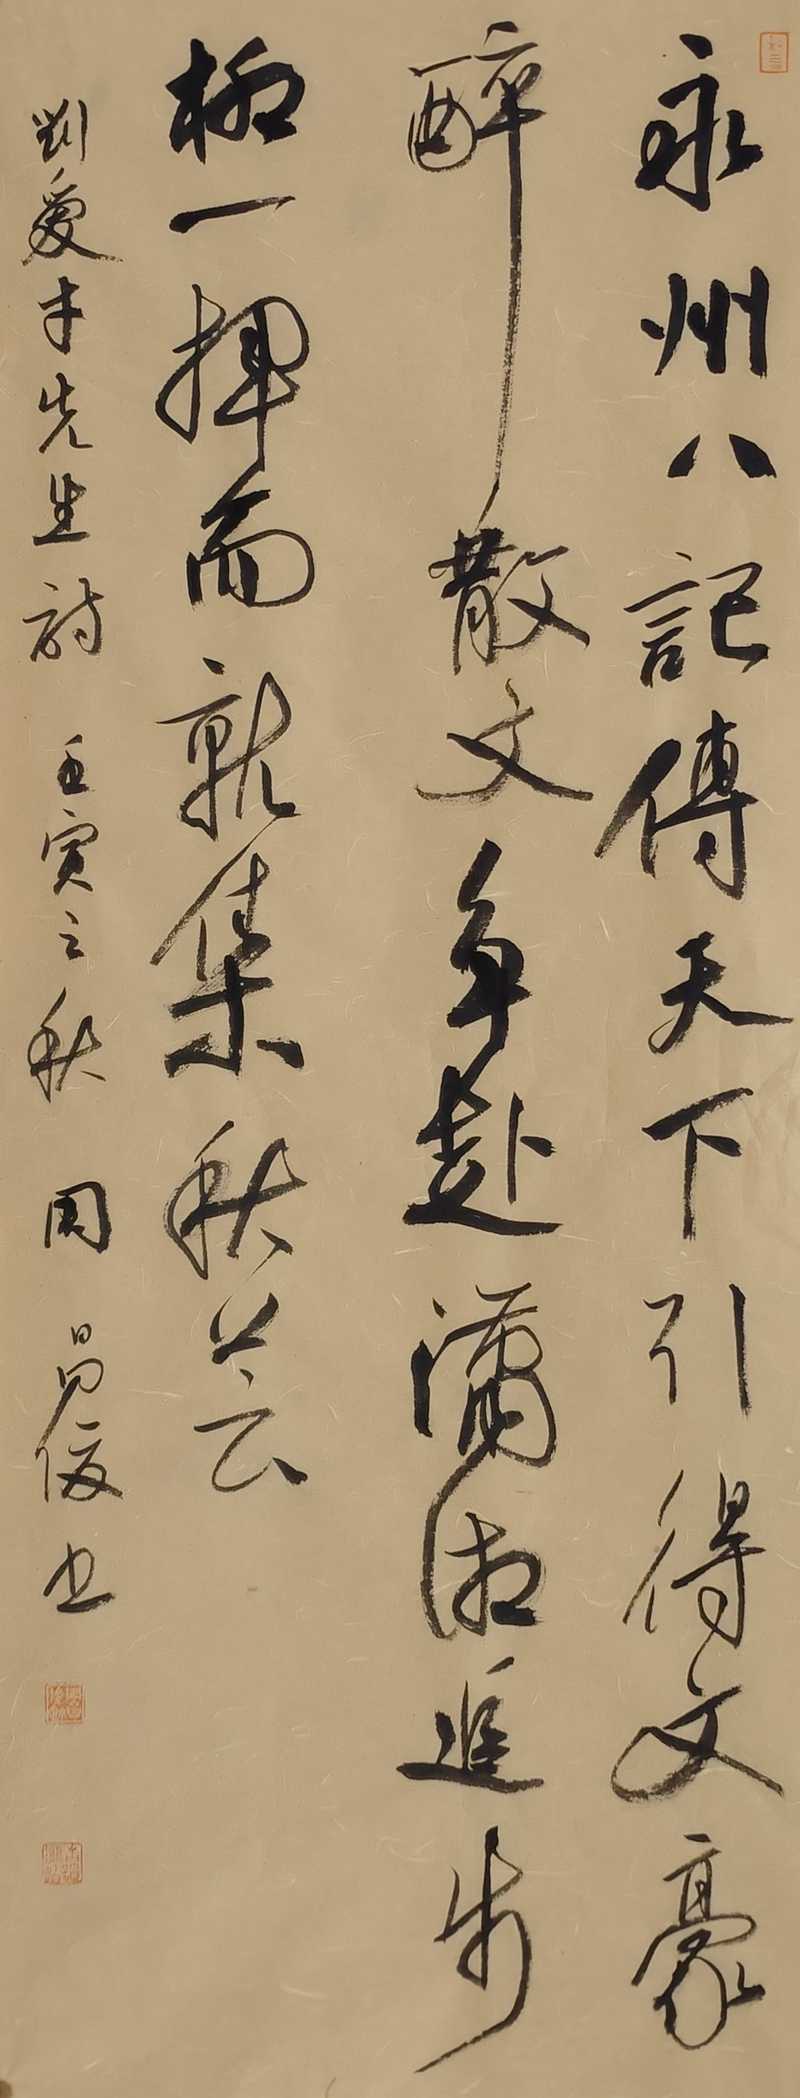 永州八記傳天下引得文豪
醉散文争赴瀟湘進步
柳一揮而就集秋芸
劉愛才先生詩 壬寅之秋 周昌俊书